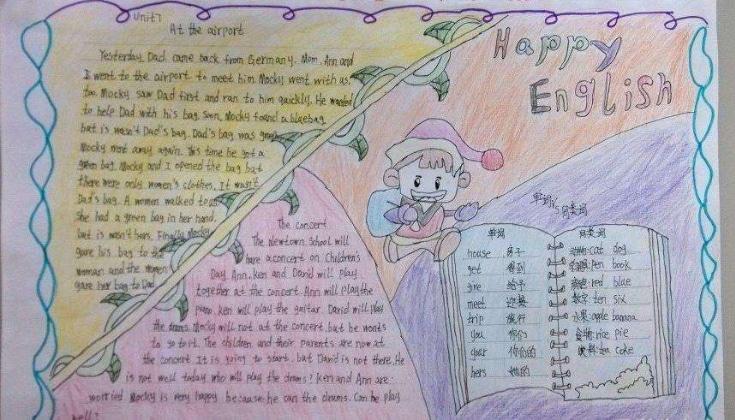 Unit7
At the airport
Yesterday Dad came back from Germany. Mom, Ann and
I went to the airport to meet him Mocky went with us,
too. Mocky saw Dad first and ran to him quickly. He wanted
to help Dad with his bag. Soon, Mocky found a bluebag
but is wasn't Dad's bag. Dad's bag was green
Mocky went away again. This time he got a
green bag. Mocky and I opened the bag but
there were only women's clothes. It wasn't
Dad's bag. A women walked to us
She had a green bag in her hand,
but is wasn't hers. Finally Mocky
gave his bag to the
woman and the women
gave her bag to Dad
The concert
The Newtown School will
have a concert on Children's
Day. Ann, Ken and David will play
together at the concert. Ann will play the
piano. Ken will play the guitar. David will play
the drums. Mocky will not at the concert. but he wants
to go to it. The children and their parents are now at
the concert. It is going to start. but David is not there. He
is not well today who will play the drums? Ken and Ann are
worried Mocky is very happy because he can the drums. Can he play
well?
Happy
English
单词 归类词
单词
house 房子
get 得到
give 给予
meet 迎接
trip 旅行
you 你们
your 你们的
hers 她的
归类词
动物: cat dog
pen book
red blue
数字: ten six
水果: apple banana
食物: rice pie
饮料: tea coke